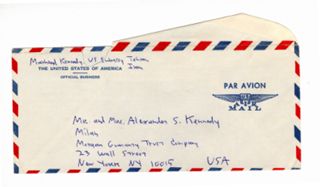 Moorhead Kennedy, US Embassy Tehran
Iran
THE UNITED STATES OF AMERICA
OFFICIAL BUSINESS
PAR AVION
AIR
MAIL
Mr. and Mrs. Alexander S. Kennedy
Milan
Morgan Guaranty Trust Company
23 Wall Street
New York NY 10015 USA